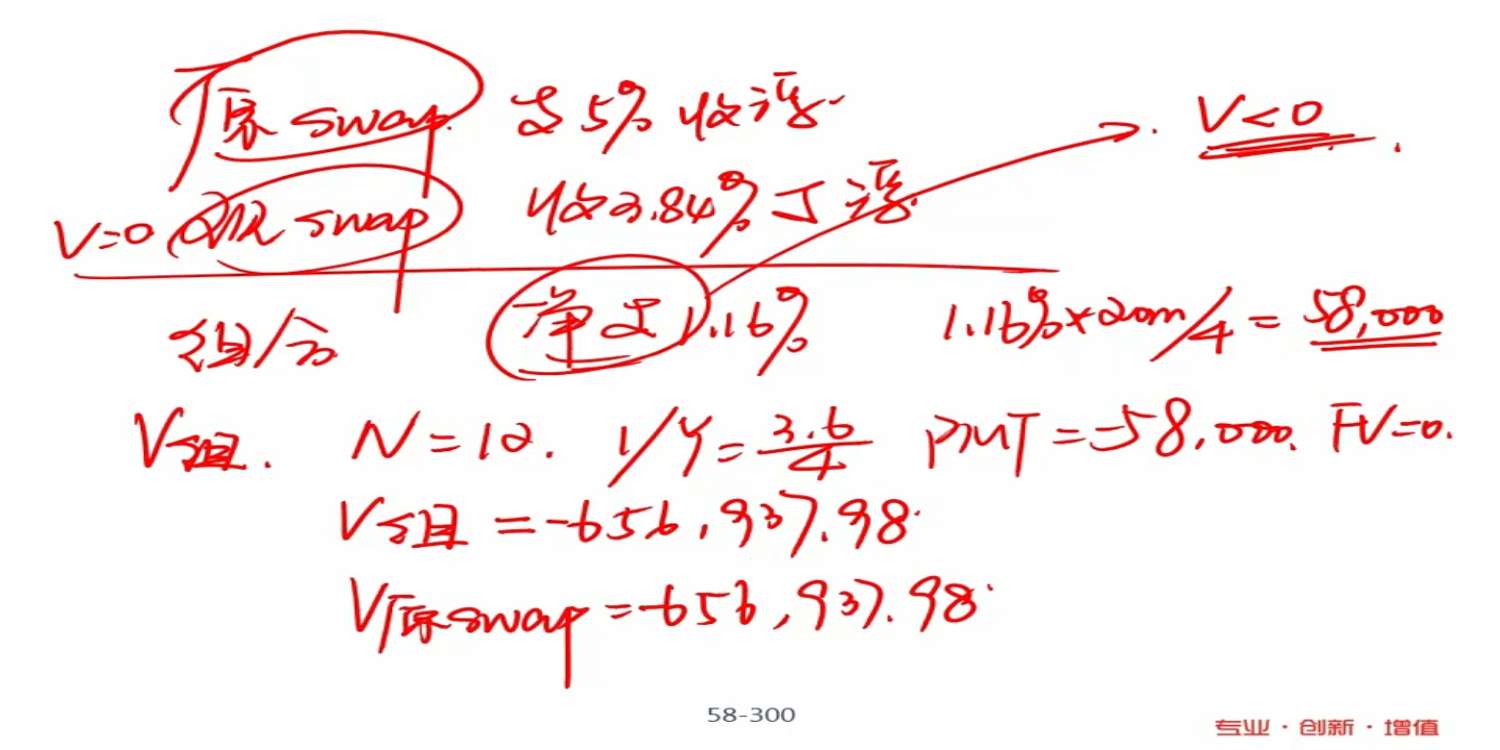 原swap 支5% 收浮. V<0
V=0 现swap 收3.84% 支浮
组合 净支1.16% 1.16%×20m/4=58,000
V组. N=12. I/Y=3.6/4 PMT=-58,000. FV=0.
V组=-656,937.98
V原swap=-656,937.98
58-300
专业·创新·增值